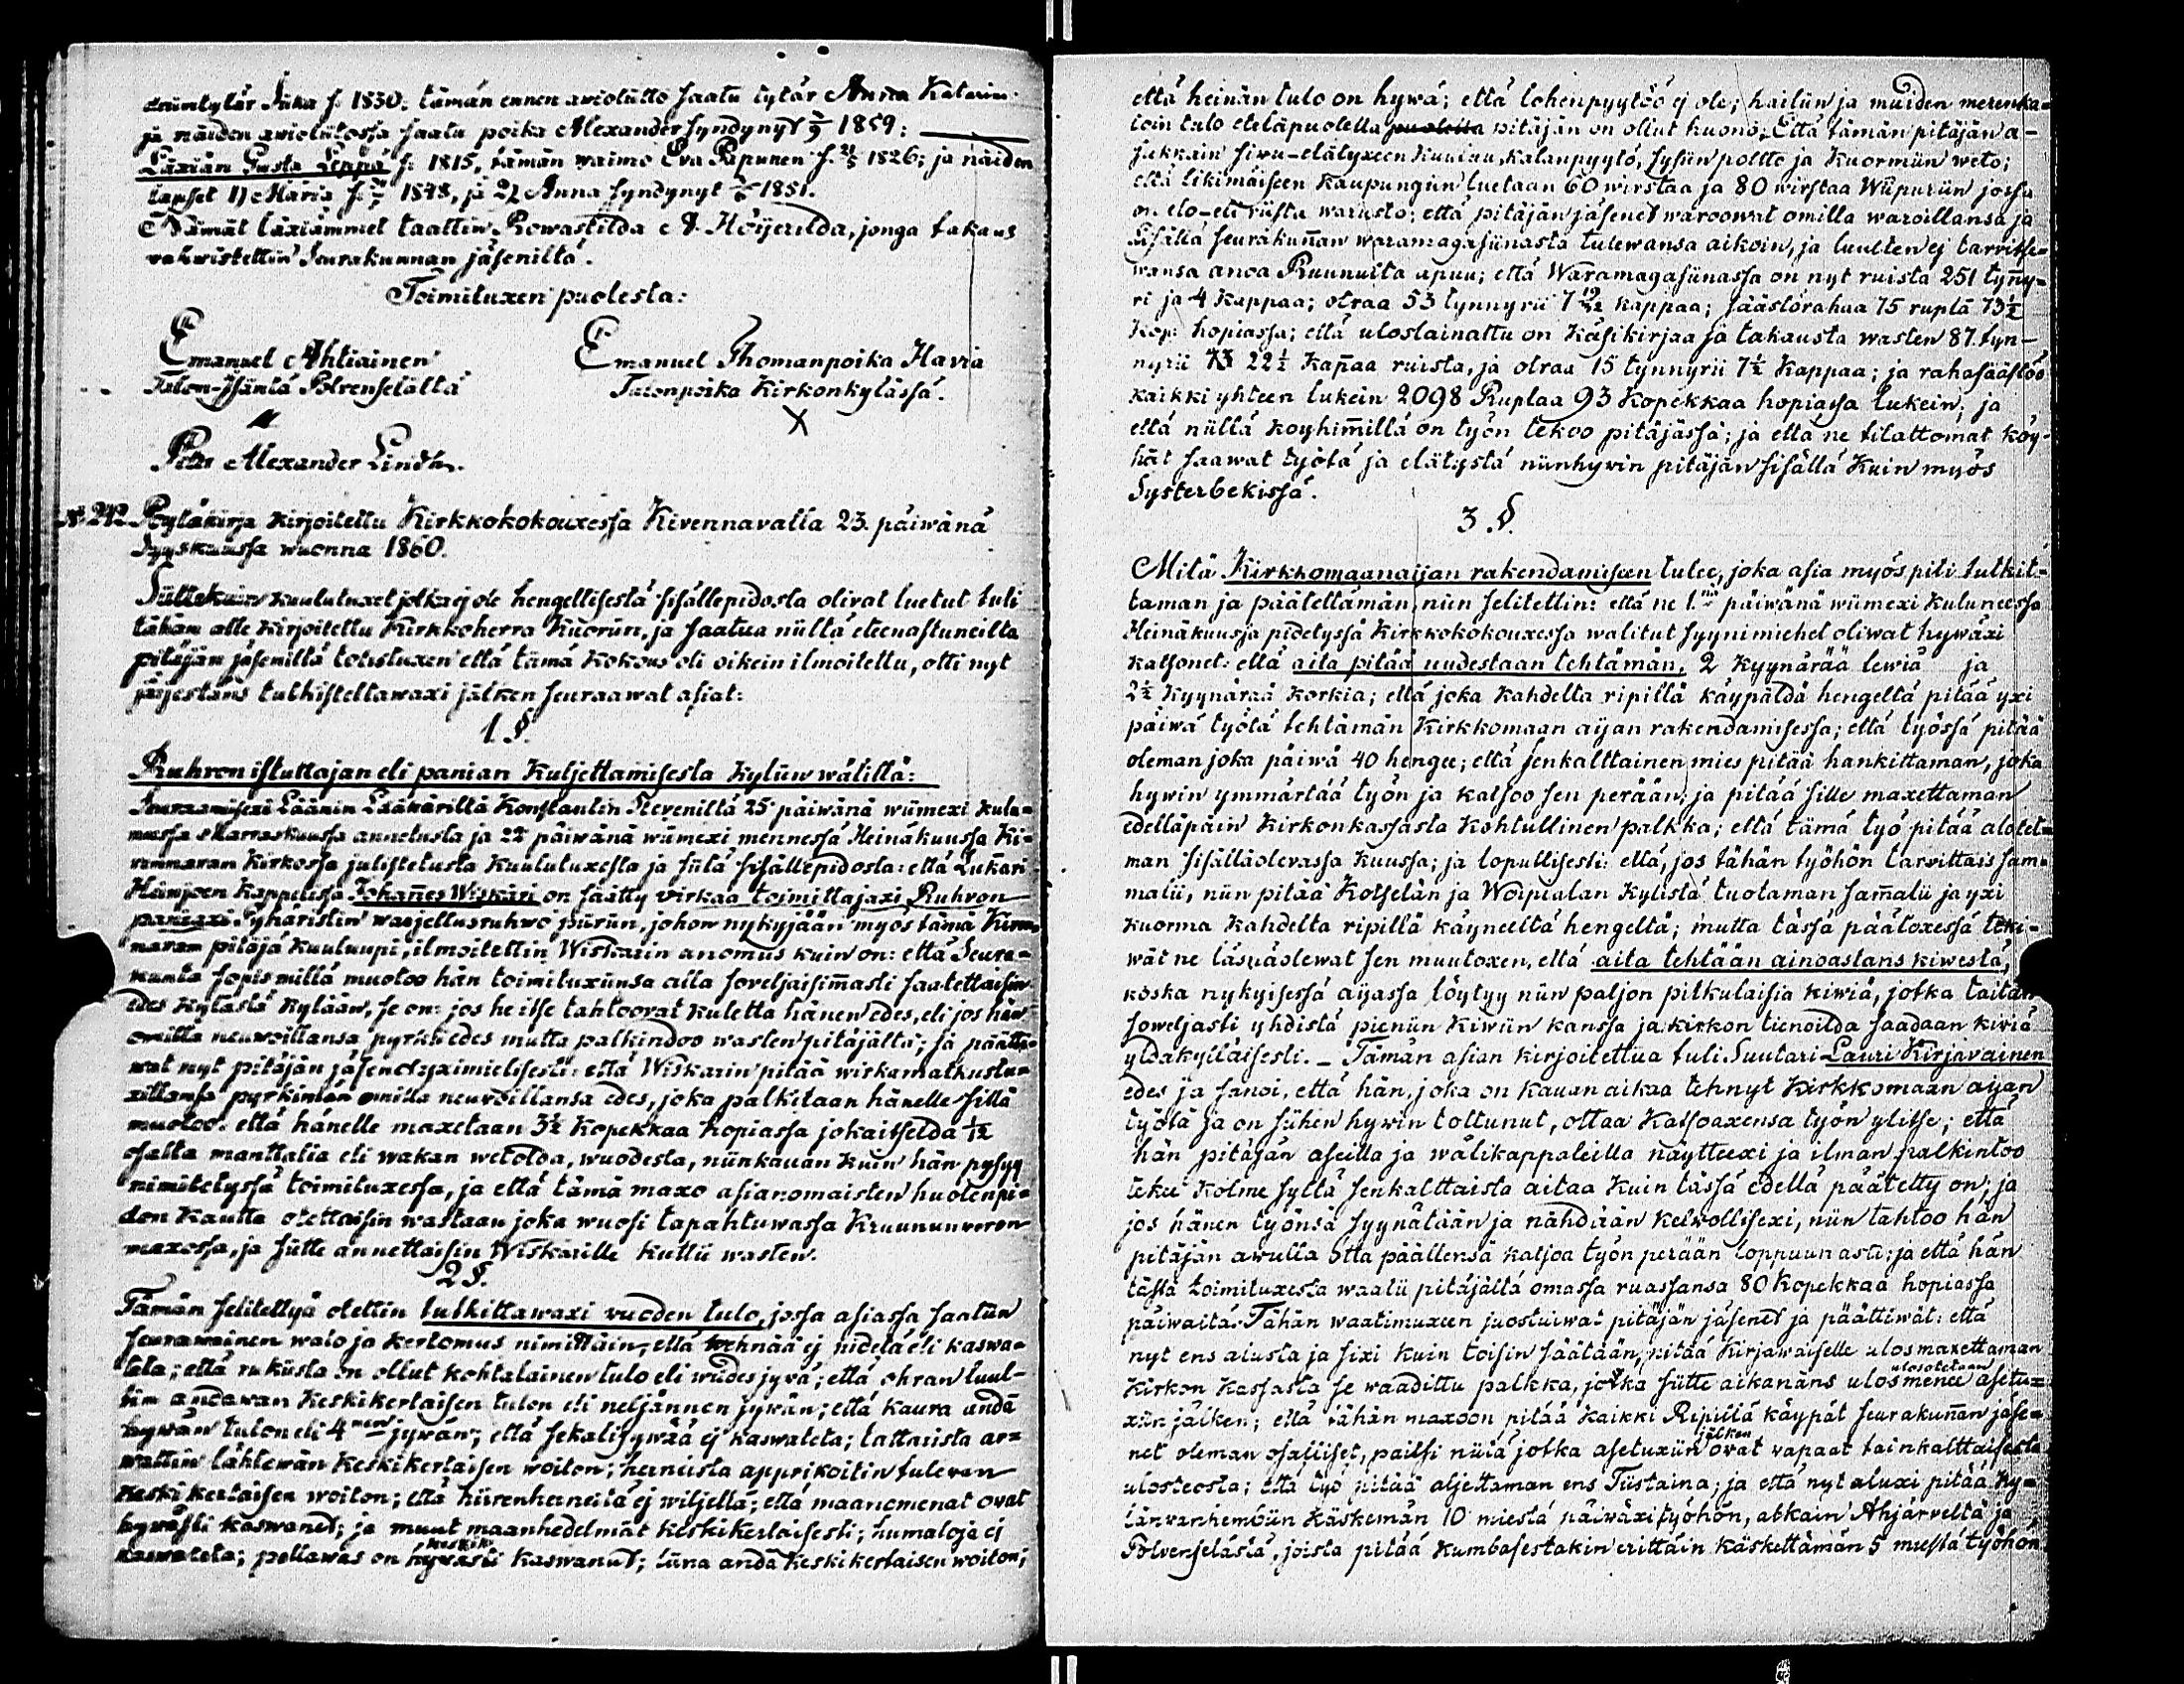 tämän ennen aviotuttu saatu tytär Anna Katarin:
ja näiden aviolütossa saatu poika Alexander syndynyt 1859;
Läxiän Gusta Leppä f. 1815, tämän waimo Eva Papunen f. 1826; ja näiden
lapset 1) Maria f. 1848, ja 2) Anna syndynyt 1851.
Nämät läxiämmet taattin Rowastilda A. Höijerilda, jonga takaus
vahwistettin Seurakunnan jäseniltä.
Toimituxen puolesta:
Emanuel Ahtiainen
Talon-Isäntä Polvenselältä
Emanuel Thomanpoika Havia
Talonpoika Kirkonkylässä.
X
Peter Alexander Lindh.
No 242. Pöytäkirja kirjoitettu Kirkkokokouxessa Kivennavalla 23. päiwänä
Syyskuussa wuonna 1860.
Sittekuin kuulutuxet jotka ej ole hengellisestä sisällepidosta olivat luetut tuli
tähän alle kirjoitettu Kirkkoherra Kuoriin, ja saatua niiltä eteenastuneilta
pitäjän jäseniltä totistuxen että tämä kokous oli oikein ilmoitettu, otti nyt
järjestäns tutkisteltawaxi jälken seuraawat asiat:
1. §.
Ruhron istuttajan eli panian kuljettamisesta kyliin wälillä:
Seuraamisexi Läänin Lääkäriltä Konstantin 25 päiwänä wiimexi kulu-
nessa Marraskuussa annetusta ja 22 päiwänä wiimexi mennessä Heinäkuussa Ki-
vennavan Kirkossa julistetusta Kuulutuxesta ja siitä sisällepidosta: että Lukkari
Kappelissa Johannes Wiskari on säätty virkaa toimittajaxi Ruhron
paniaxi Syhäristin waijellusruhwo piiriin, johon nykyjään myös tämä Kiven-
navan pitäjä kuuluupi, ilmoitettin Wiskarin anomus kuin on: että Seura-
kunta sopis millä muotoo hän toimituxiinsa alla soveljaisimasti saatettaisiin
edes kylästä kylään, se on: jos he itse tahtoovat kuletta hänen edes, eli jos hän
omilla neuwoillansa pyrkii edes mutta palkindoo wasten pitäjältä; ja päätti-
wat nyt pitäjän jäsenet yximielisesti: että Wiskarin pitää wirkamatkustu-
xillansa pyrkimän omilla neuvoillansa edes, joka palkitaan hänelle sillä
muotoo: että hänelle maxetaan 3½ Kopekkaa hopiassa jokaitselda 1/12
osalta manttalia eli wakan wetolda, wuodesta, niinkauan kuin hän pysyy
nimitetyssä toimituxessa, ja että tämä maxo asianomaisten huolenpi-
don kautta otettaisin wastaan joka wuosi tapahtuwassa Kruununveron
maxossa, ja siitte annettaisin Wiskarille kuttii wasten.
2 §.
Tämän selitettyä otettin tutkittawaxi vuoden tulo, jossa asiassa saatiin
seurawainen walo ja kertomus nimittäin; että wehnää ej nidetä eli kaswa-
teta; että rukiista on ollut kohtalainen tulo eli wiides jyvä; että ohran luul-
tiin andawan keskikertaisen tulon eli neljännen jywän; että kaura andä
hywän tulon eli 4 nen jywän; että sekalisywää ej kaswateta; tattarista ar-
wattiin lähtewän keskikertaisen woiton; herneista apprikoitin tulevan
keski kertaisen woiton; että hiirenherneitä ej wiljellä; että maanomenat ovat
hyväsli kaswanet; ja muut maanhedelmät keskikertaisesti; humaloja ej
kaswateta; pellawas on keskik. hywästi kaswanut; liina andä keskikertaisen woiton;
että heinän tulo on hywä; että lohenpyytöö ej ole; hailiin ja muiden merenka-
loin tulo eteläpuolella puolella pitäjän on ollut huono; Että tämän pitäjän a-
sukkain siwu-elätyxeen kuuluu kalanpyytö, sysiin poltto ja kuormiin weto;
että likimäiseen kaupungiin luetaan 60 wirstaa ja 80 wirstaa Wiipuriin jossa
on elo-eli viista warasto; että pitäjän jäsenet waroowat omilla waroillansa ja
Sisällä seurakunnan waramagasiinasta tulewansa aikoin, ja luulten ej tarvitse-
wansa anoa Ruunulta apuu; että Waramagasiinassa on nyt ruista 251 tynny-
ri ja 4 Kappaa; otraa 53 tynnyrii 7 19/32 kappaa; säästörahaa 75 ruplä 73½
kop: hopiassa; että uloslainattu on käsikirjaa ja takausta wasten 87. tyn-
nyrii 22½ kapaa ruista, ja otraa 15 tynnyrii 7½ kappaa; ja rahasäästöö
kaikki yhteen lukein 2098 Ruplaa 93 Kopekkaa hopiassa lukein; ja
että niillä köyhimillä on työn tekoo pitäjässä; ja että ne tilattomat köy-
hät saawat työtä ja elätystä niinhyvin pitäjän sisällä kuin myös
Systerbekissä.
3 §.
Mitä Kirkkomaanaijan rakendamiseen tulee, joka asia myös piti tutkit-
taman ja päätettämän niin selitettin: että ne 1.nä päiwänä wiimexi kuluneessa
Heinäkuusja pidetyssä Kirkkokokouxessa walitut syynimiehet oliwat hywäxi
katsonet: että aita pitää uudestaan tehtämän, 2 kyynärää lewiä ja
2½ kyynärää korkia; että joka kahdelta ripillä käypäldä hengeltä pitää yxi
päiwä työtä tehtämän Kirkkomaan aijan rakendamisessa; että työssä pitää
oleman joka päiwä 40 hengee; että senkalttainen mies pitää hankittaman, joka
hywin ymmärtää työn ja katsoo sen perään, ja pitää sille maxettaman
edelläpäin Kirkonkassasta kohtullinen palkka; että tämä työ pitää alotet-
man sisälläolevassa kuussa; ja lopullisesti: että, jos tähän työhön tarvittais sam-
malii, niin pitää Kotselän ja Woipialan kylistä tuotaman sammalii ja yxi
kuorma kahdelta ripillä käyneeltä hengeltä; mutta tässä päätöxessä teki-
wät ne läsnäolewat sen muutoxen, että aita tehtään ainoastans kiwestä,
koska nykyisessä aijassa löytyy niin paljon pitkulaisia kiwiä, jotka taitan
soweljasti yhdistä pieniin kiwiin kanssa ja kirkon tienoilda saadaan kiviä
yldäkylläisesti. - Tämän asian kirjoitettua tuli Suutari Lauri Kirjavainen
edes ja sanoi, että hän, joka on kauan aikaa tehnyt Kirkkomaan aijan
työtä ja on siihen hywin tottunut, ottaa katsoaxensa työn ylitse; että
hän pitäjän aseilla ja wälikappaleilla näytteexi ja ilman palkintoo
tekee kolme syltä senkalttaista aitaa kuin tässä edellä päätetty on; ja
jos hänen työnsä syynätään ja nähdään kelwollisexi, niin tahtoo hän
pitäjän awulla otta päällensä katsoa työn perään loppuun asti; ja että hän
tästä toimituxesta waatii pitäjältä omassa ruassansa 80 Kopekkaa hopiassa
päiwältä. Tähän waatimuxeen juostuiwat pitäjän jäsenet ja päättiwät: että
nyt ens alusta ja sixi kuin toisin säätään, pitää Kirjawaiselle ulosmaxettaman
Kirkon Kassasta se waadittu palkka, jotka siitte aikanans ulosmenee ulosotetaan asetu-
xiin jälken; että tähän maxoon pitää kaikki Ripillä käypät seurakunnan jäse-
net oleman osalliset, paitsi niiiä jotka asetuxiin jälken ovat vapaat tainkalttaisesta
ulosteosta; että työ pitää aljettaman ens Tiistaina; ja että nyt aluxi pitää ky-
länvanhembiin käskemän 10 miestä päiwäxi työhön, alkain Ahjärveltä ja
Polvenselästä, joista pitää kumbasestakin erittäin käskettämän 5 miestä työhön